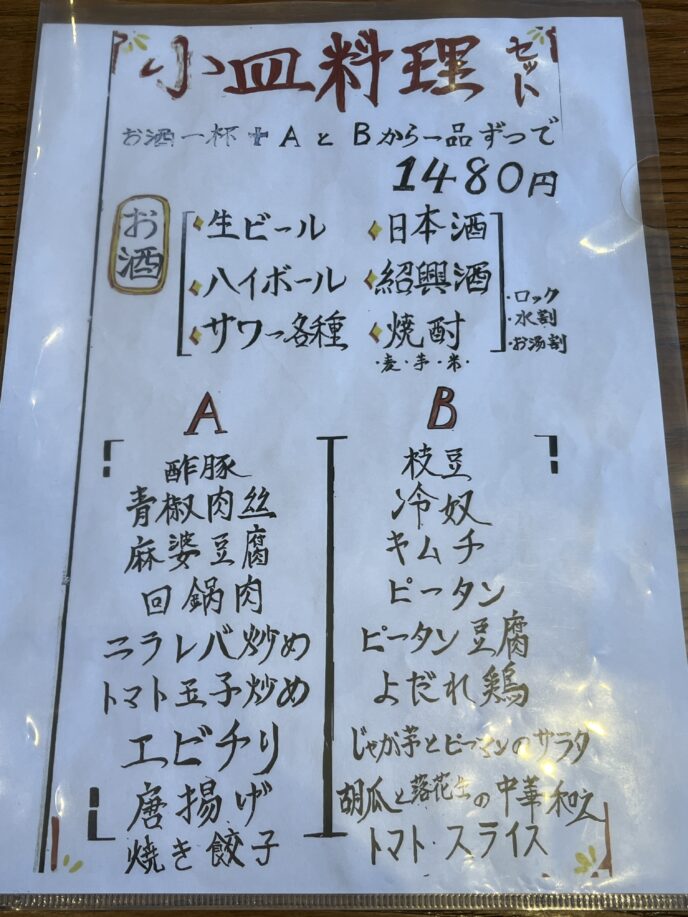 小皿料理セット
お酒一杯+AとBから一品ずつで
1480円
お酒
生ビール
ハイボール
サワー各種
日本酒
紹興酒
焼酎
・麦・芋・米・
・ロック
・水割
・お湯割
A
酢豚
青椒肉丝
麻婆豆腐
回鍋肉
ニラレバ炒め
トマト玉子炒め
エビチリ
唐揚げ
焼き餃子
B
枝豆
冷奴
キムチ
ピータン
ピータン豆腐
よだれ鶏
じゃが芋とピーマンのサラダ
胡瓜と落花生の中華和え
トマト・スライス